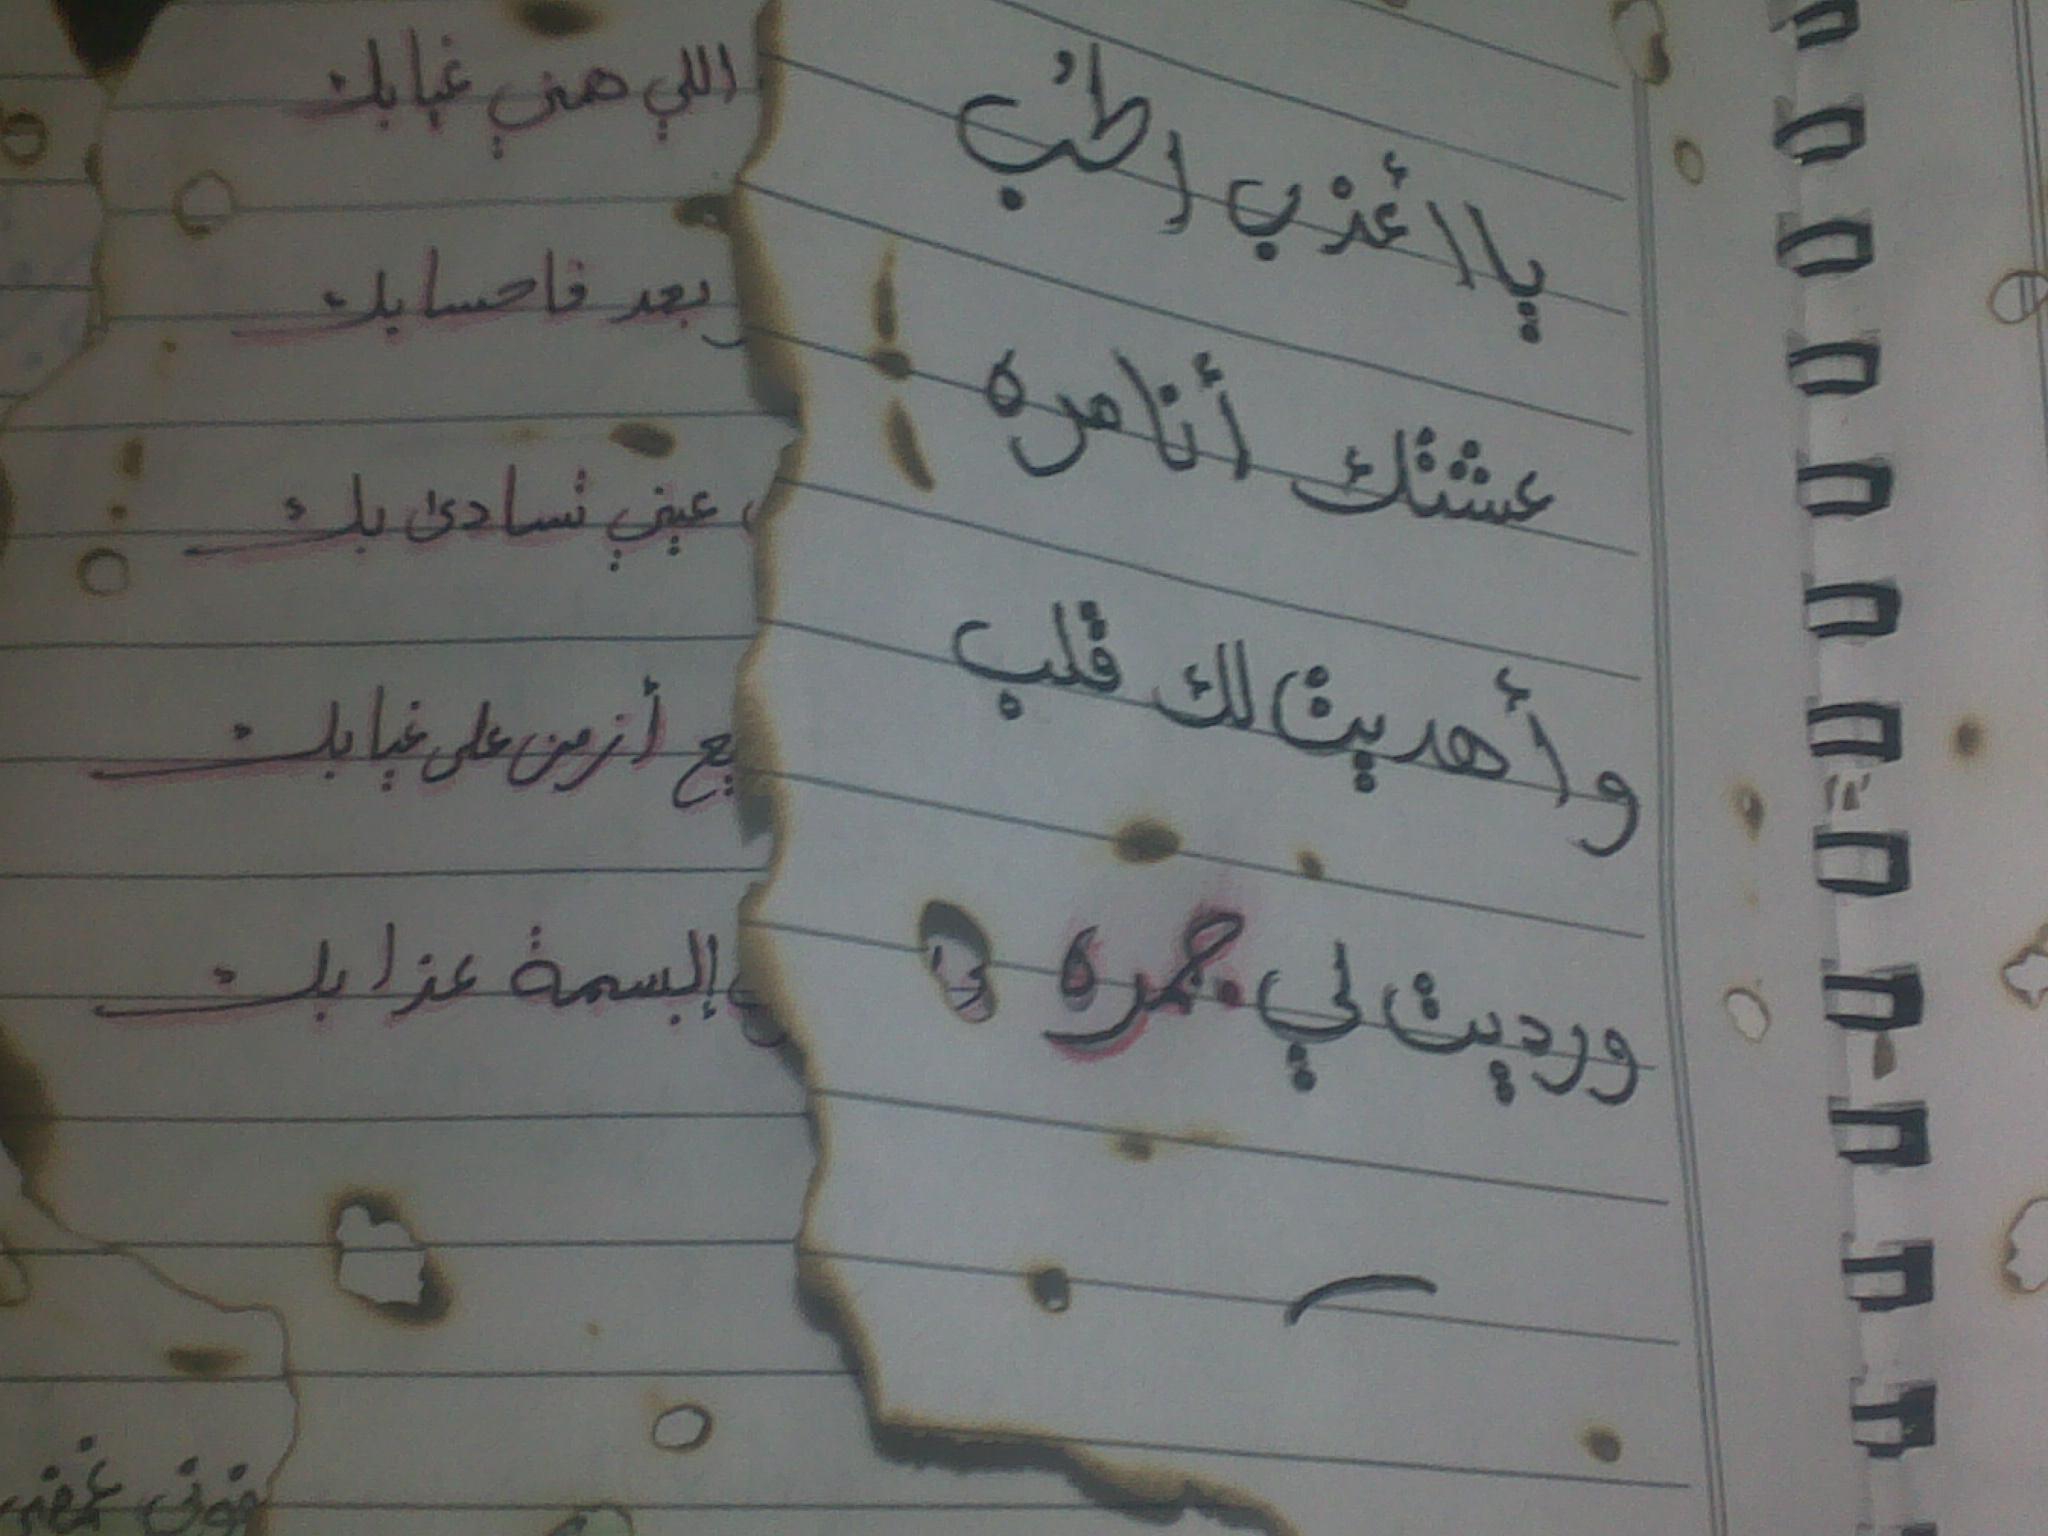 يا اعذب اطب
عشتك أنا مره
وأهديت لك قلب
ورديت لي جمره
اللي هني غيابك
بعد فا حسابك
عيني تسادئ بك
أزمن على غيابك
إلبسمة عذابك